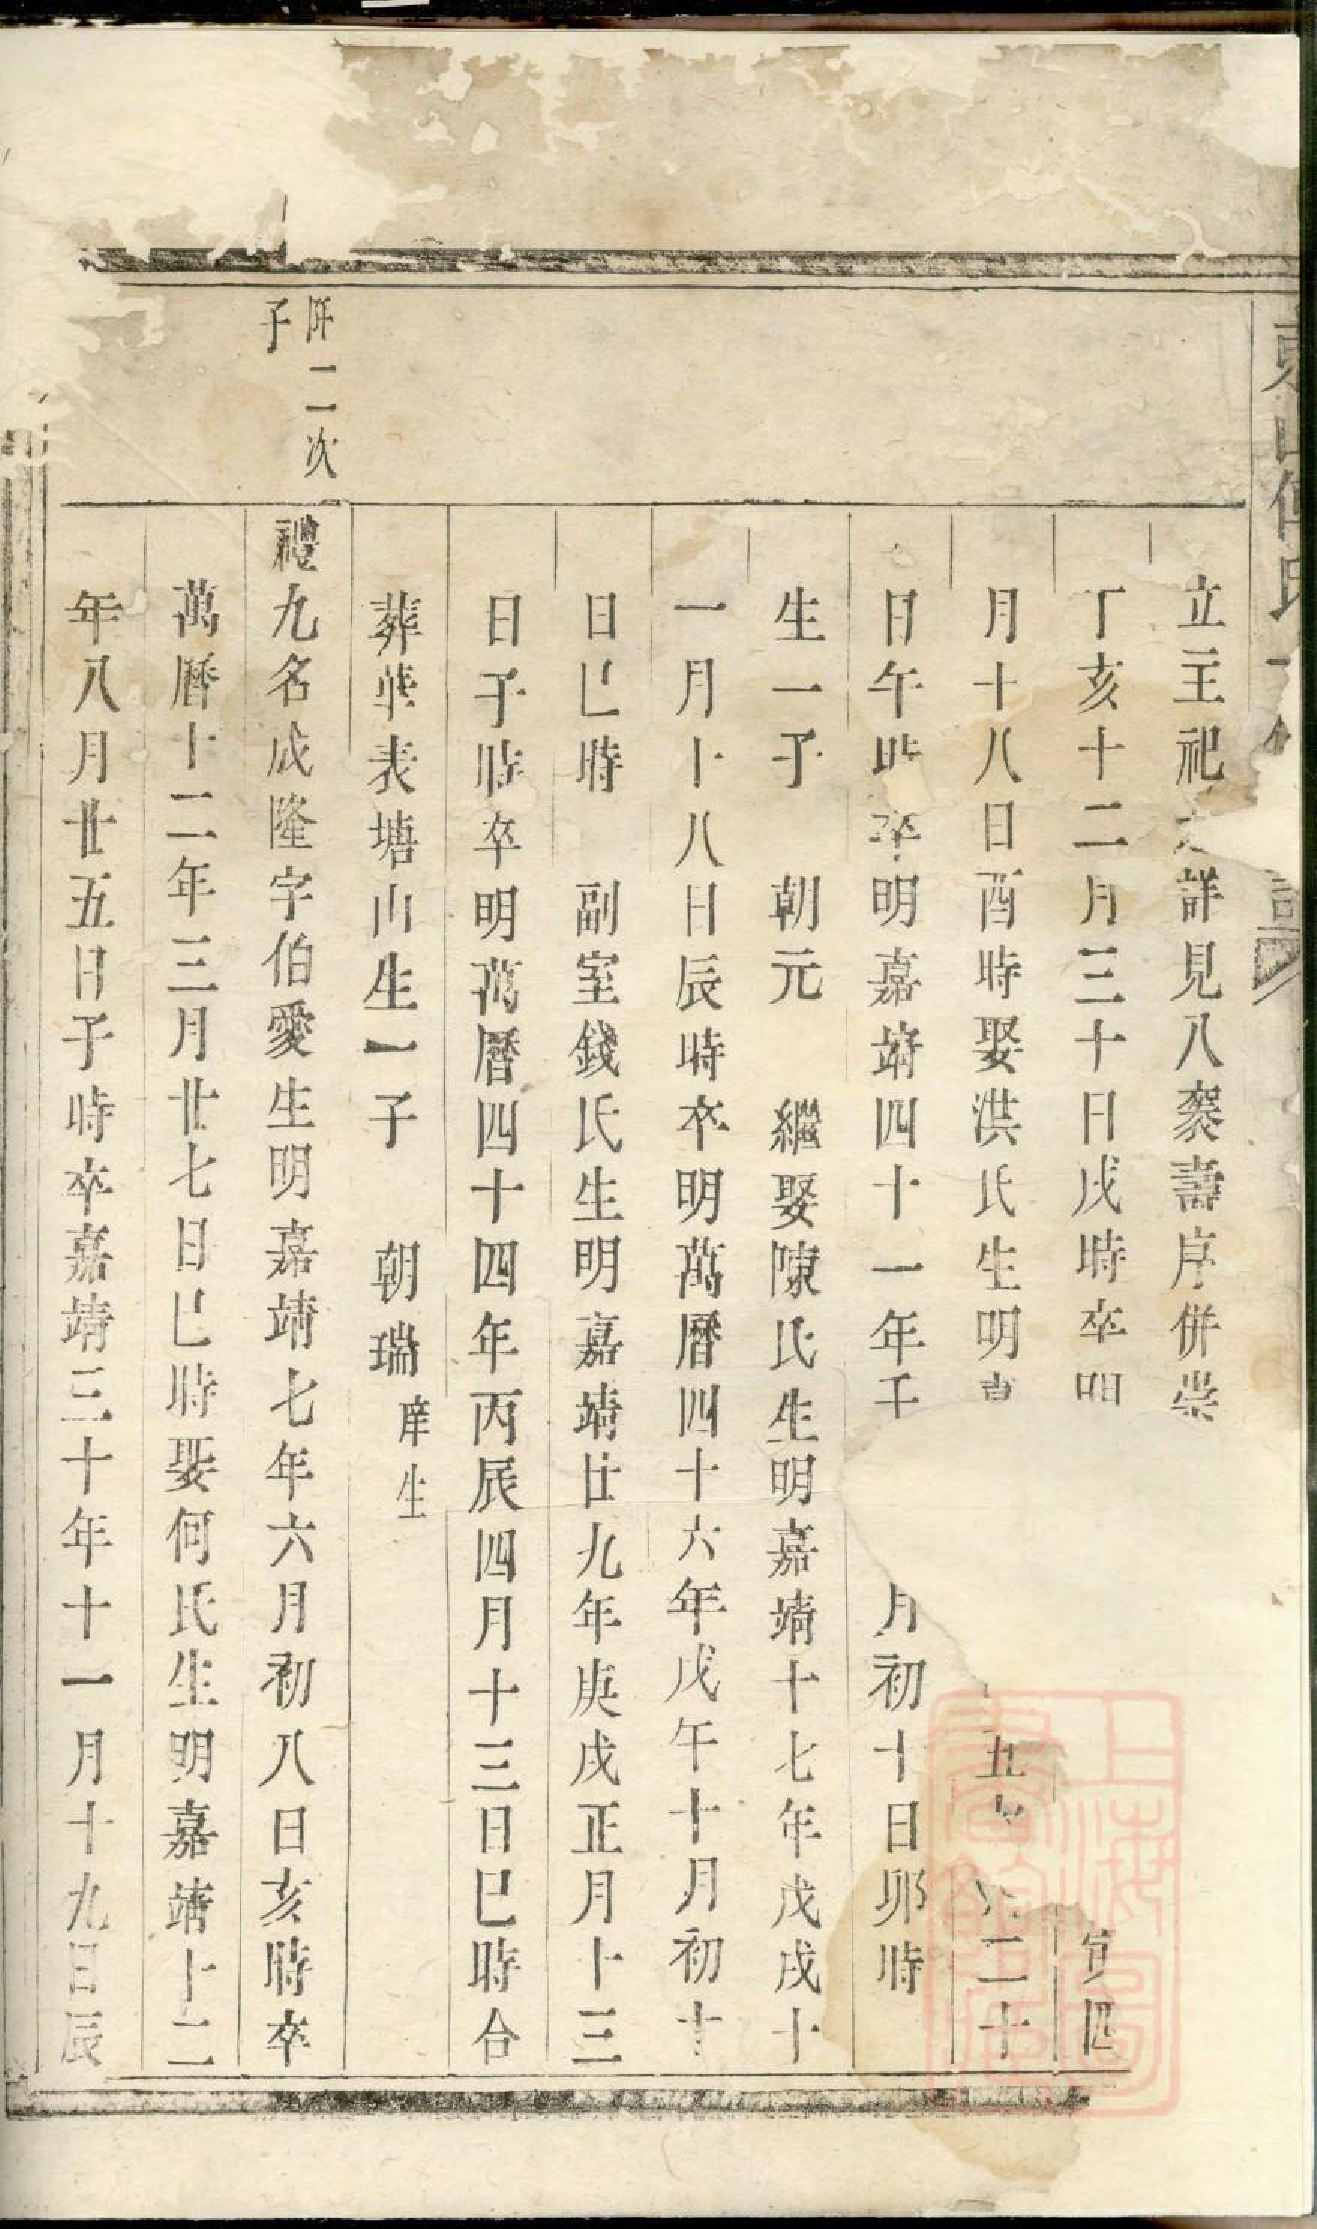 立主祀詳見八袠壽序併崇
丁亥十二月三十日戌時卒明 寅四
月十八日酉時娶洪氏生明 五 二十
日午時卒明嘉靖四十一年壬 月初十日卯時
生一子 朝元 繼娶陳氏生明嘉靖十七年戊戌十
一月十八日辰時卒明萬曆四十六年戊午十月初十
日巳時 副室錢氏生明嘉靖廿九年庚戌正月十三
日子時卒明萬曆四十四年丙辰四月十三日巳時合
葬華表塘山生一子 朝瑞 庠生
二次
子
禮九名成隆字伯愛生明嘉靖七年六月初八日亥時卒
萬曆十二年三月廿七日巳時娶何氏生明嘉靖十二
年八月廿五日子時卒嘉靖三十年十一月十九日辰
上海圖
書館藏